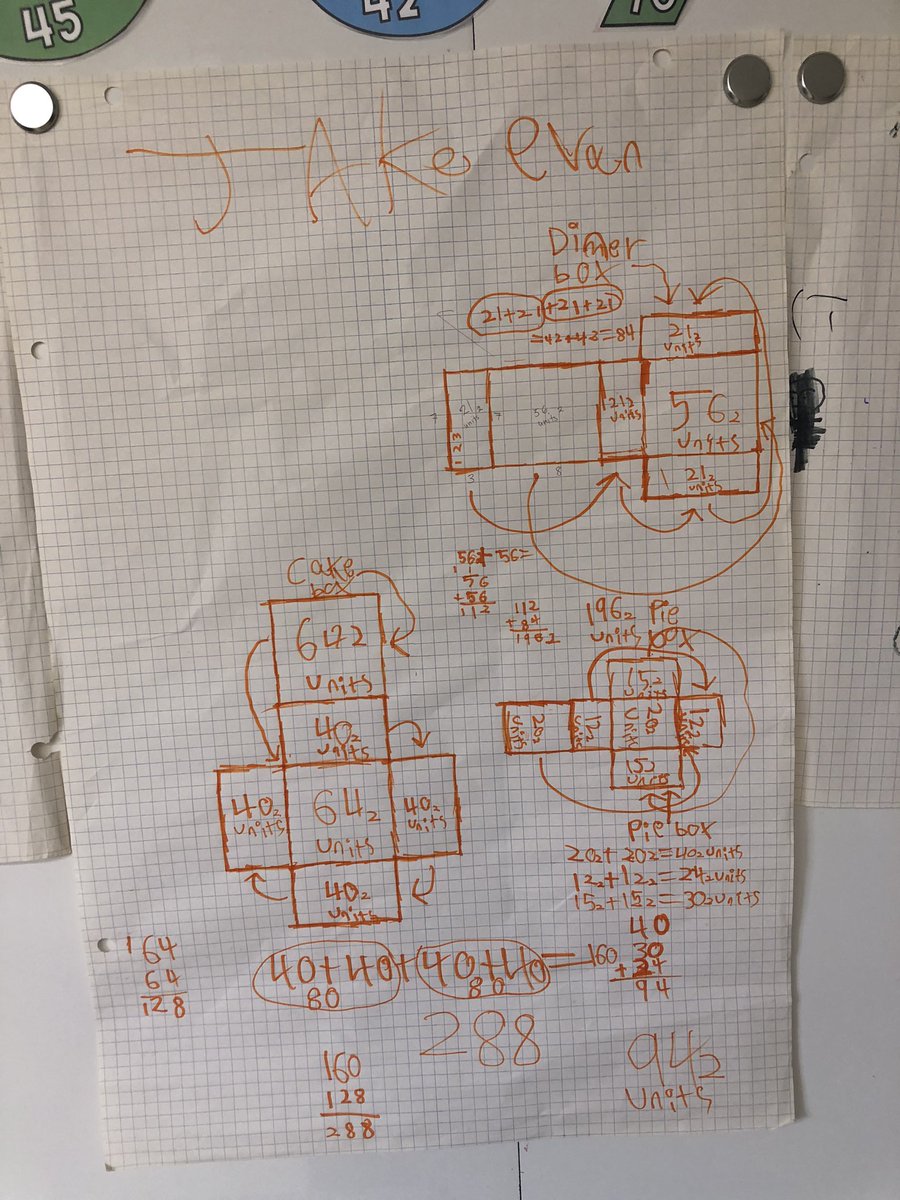 45
42
JAKe evan
Dinner
box
21+21+21+21
=42+42=84
21₂
units
7
21₂
units
1 2 3
7
56 2
units
21₂
units
56₂
units
21₂
units
3
8
56+56=
56
+56
112
112
+84
1962
196₂
units
Pie
box
Cake
box
642
units
40₂
units
40₂
units
64₂
units
40₂
units
40₂
units
15₂
units
20₂
units
12₂
units
20₂
units
12₂
units
15₂
units
Pie box
20₂+20₂=40₂units
12₂+12₂=24₂units
15₂+15₂=30₂units
40
30
+24
94
1 64
64
128
40+40+40+40=160
80 80
288
160
128
288
94₂
units